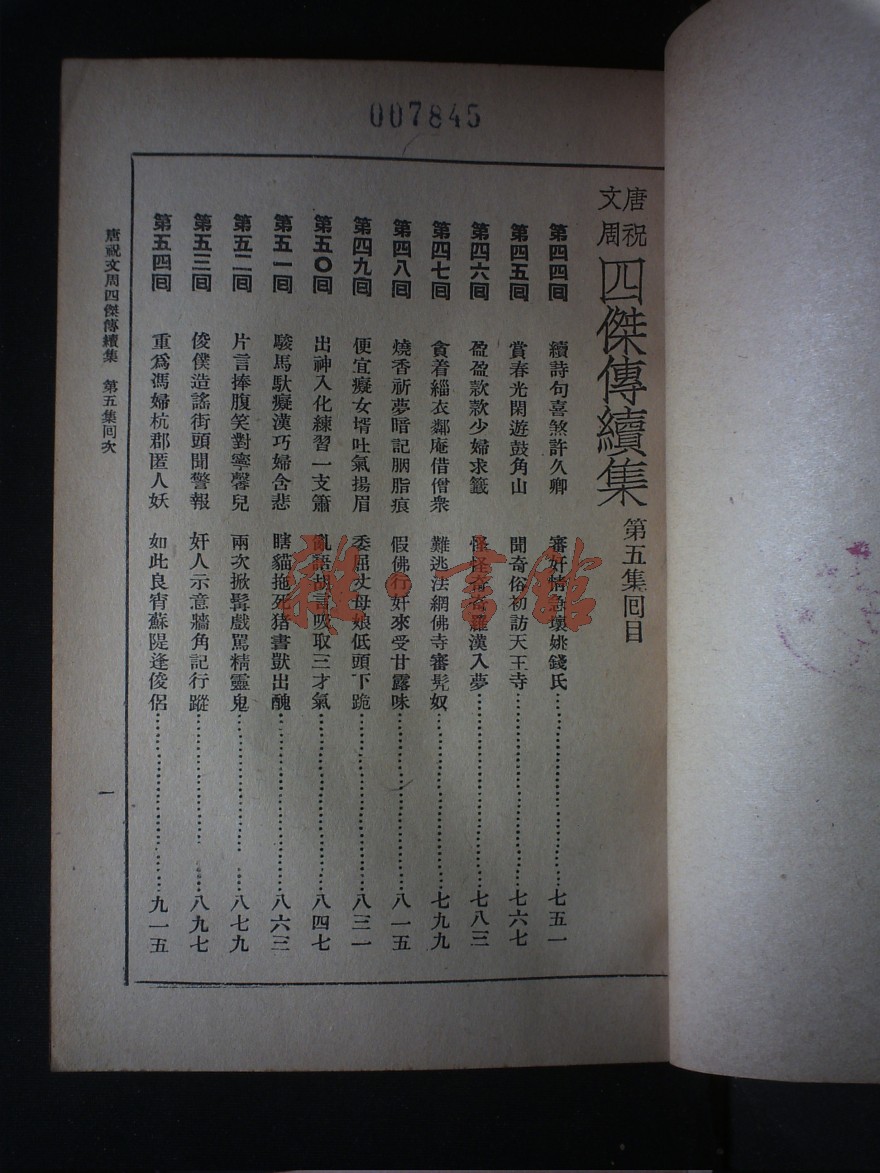 007845
唐祝文周四傑傳續集 第五集囘目
第四四囘 續詩句喜煞許久卿 審奸情急壞姚錢氏……七五一
第四五囘 賞春光閑遊鼓角山 聞奇俗初訪天王寺……七六七
第四六囘 盈盈款款少婦求籤 怪怪奇奇羅漢入夢……七八三
第四七囘 貪着緇衣鄰庵借僧衆 難逃法網佛寺審髡奴……七九九
第四八囘 燒香祈夢暗記胭脂痕 假佛行奸來受甘露味……八一五
第四九囘 便宜癡女壻吐氣揚眉 委屈丈母娘低頭下跪……八三一
第五〇囘 出神入化練習一支簫 亂語胡言吸取三才氣……八四七
第五一囘 駿馬馱癡漢巧婦含悲 瞎貓拖死猪書獃出醜……八六三
第五二囘 片言捧腹笑對寧馨兒 兩次掀髯戲罵精靈鬼……八七九
第五三囘 俊僕造謠街頭聞警報 奸人示意牆角記行蹤……八九七
第五四囘 重爲馮婦杭郡匿人妖 如此良宵蘇隄逢俊侶……九一五
唐祝文周四傑傳續集 第五集囘次
一
雜·書館